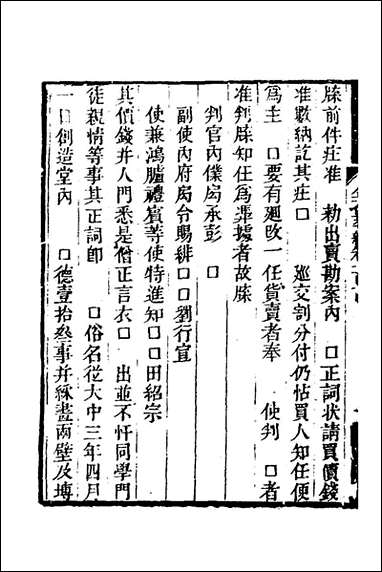 牒前件莊准　勑出賣勘案內　□正詞狀請買價錢
准數納訖其莊□　廵交割分付仍帖買人知任便
爲主　□要有廻改一任貨賣者奉　使判　□者
准判牒知任爲凴據者故牒
判官內僕局丞彭□
副使內府局令賜緋□□劉行宣
使兼鴻臚禮賓等使特進知□□田紹宗
其價錢并人門悉是僧正言衣□　出並不忓同學門
徒親情等事其正詞卽　□俗名從大中三年四月
一日創造堂內　□德壹拾叁事并綵畫兩壁及塼